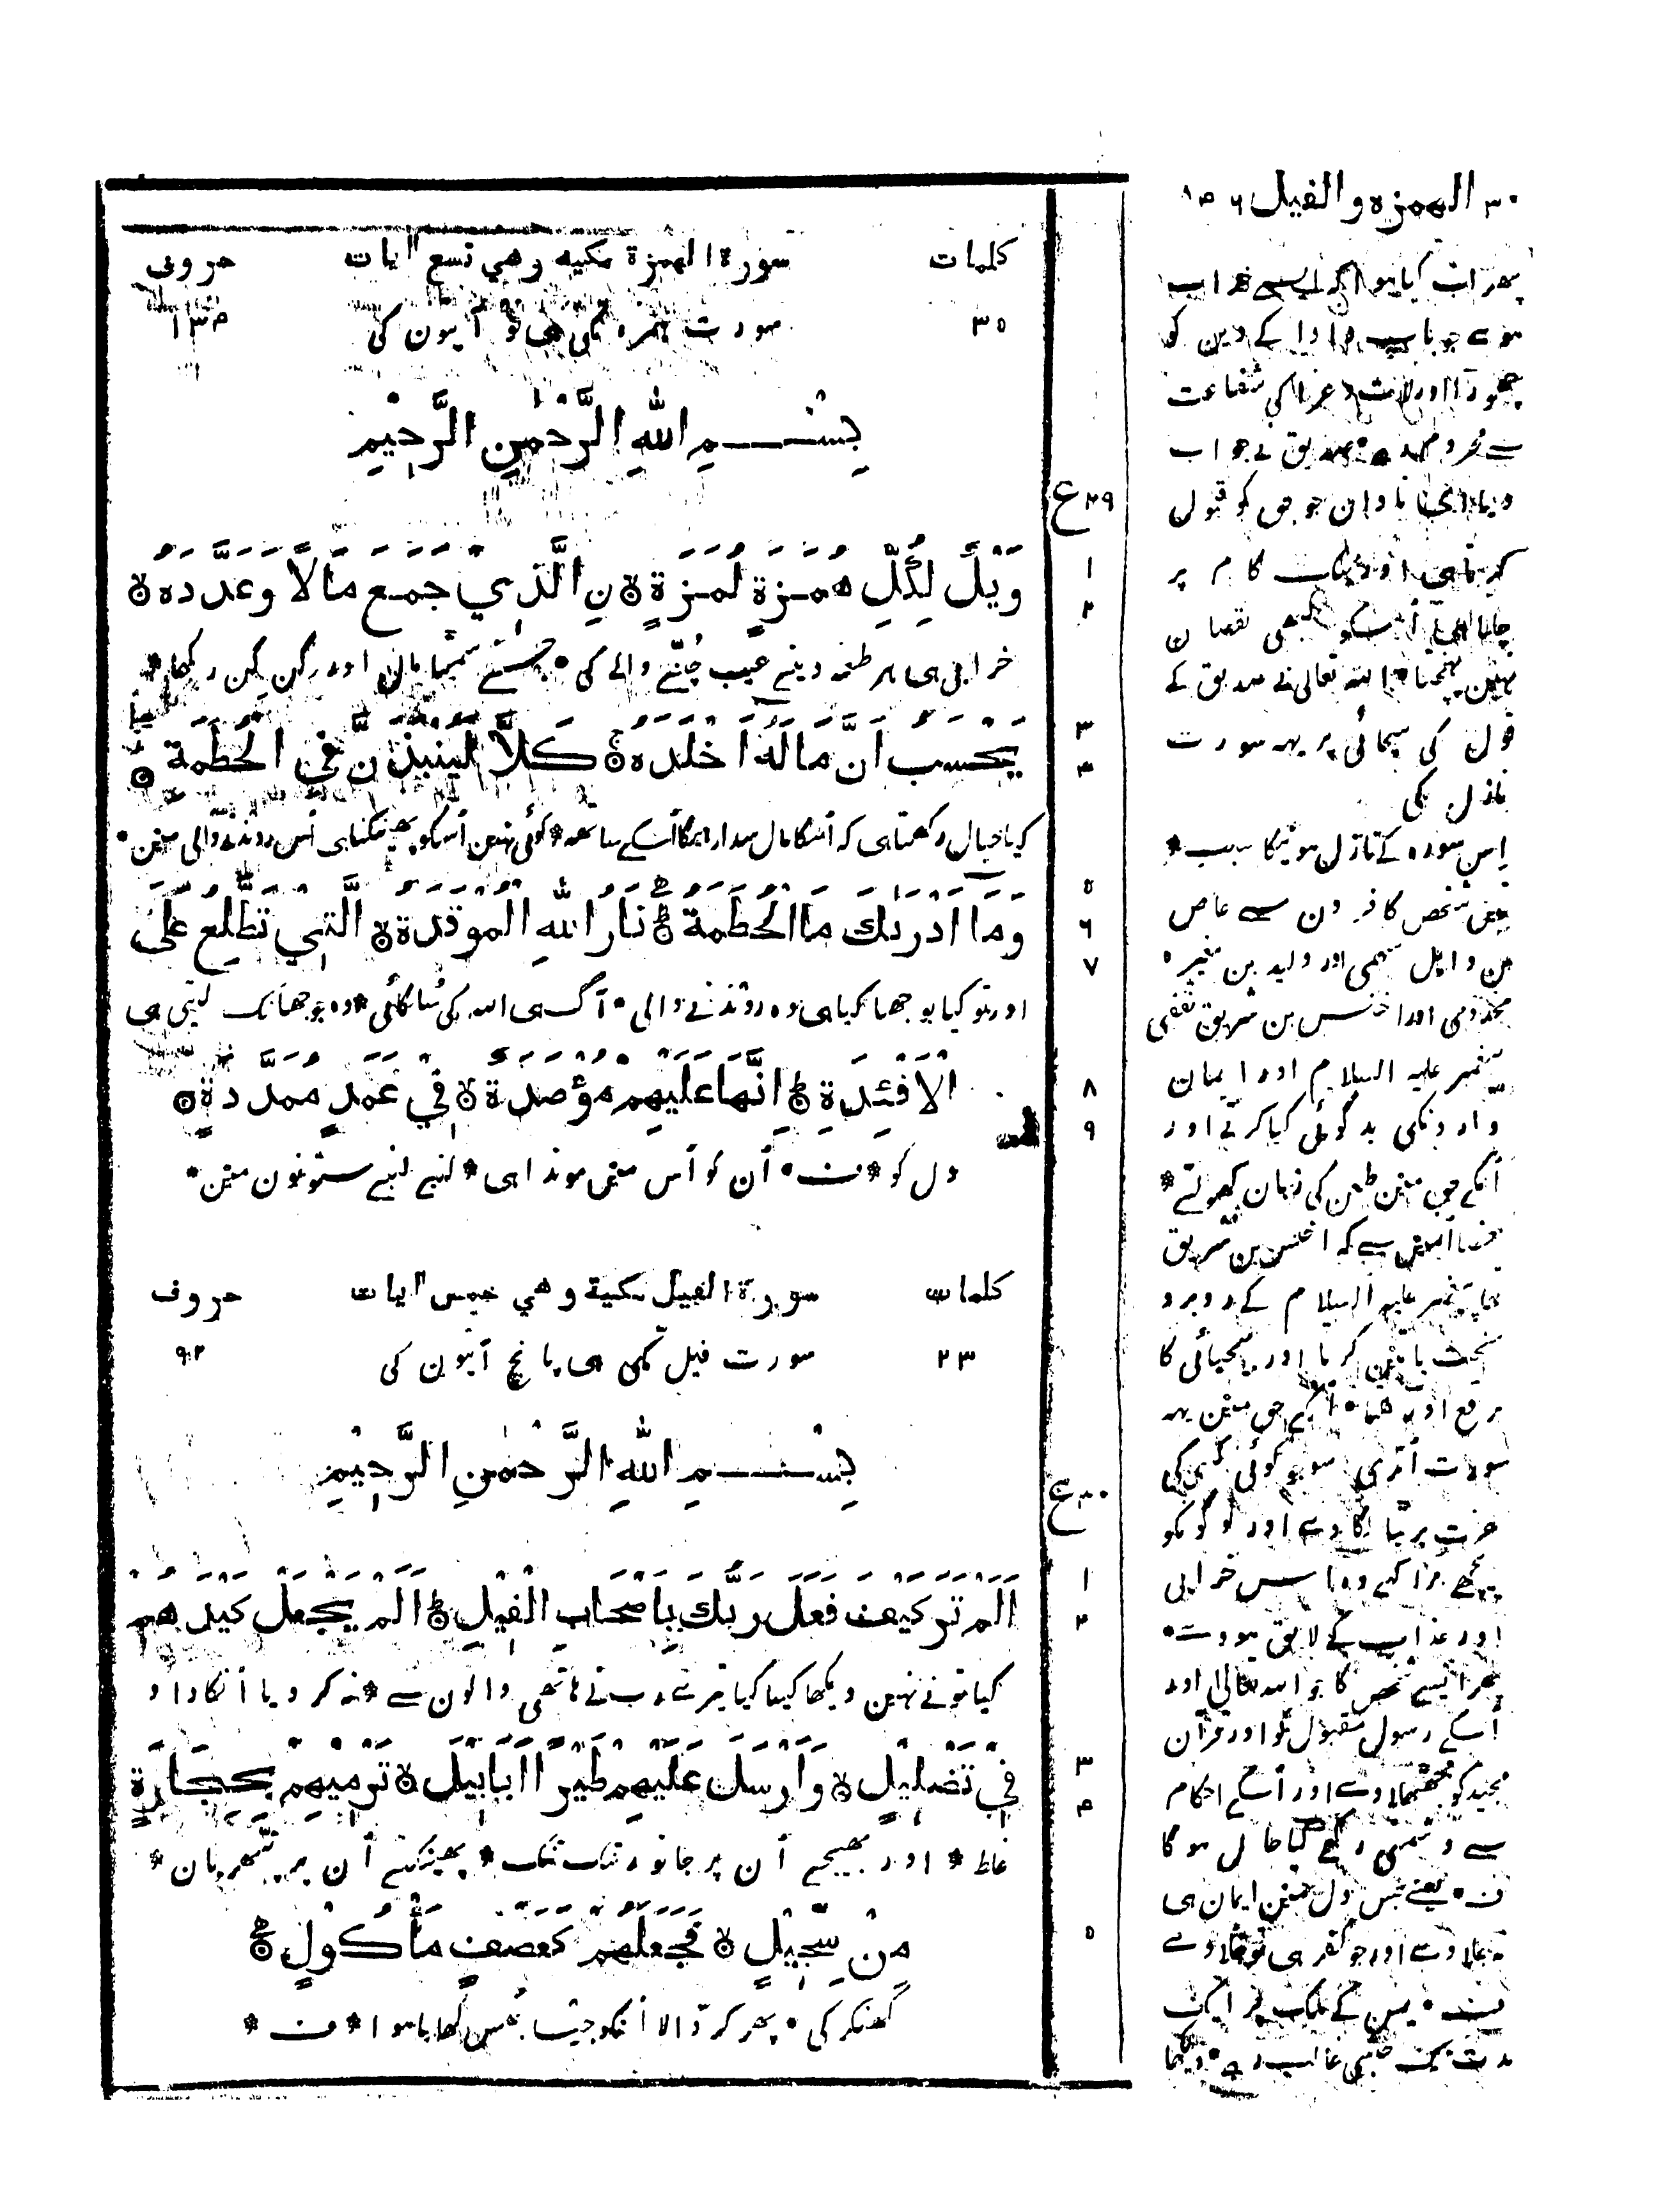 ٣٠ الهمزه والفيل
كلمات سورة الهمزة مكيه وهي تسع ايات حروف
٣٥ سورت ہمزہ مکی ہی نو آیتون کی
بِسْمِ اللّٰهِ الرَّحْمٰنِ الرَّحِيْمِ
٢٩ ع
١ ٢ وَيْلٌ لِكُلِّ هُمَزَةٍ لُمَزَةٍ نِ الَّذِيْ جَمَعَ مَالًا وَعَدَّدَهُ
خرابی ہی ہر طعنہ دینے عیب چُننے والے کی • جسنے سمیٹا مال اور گن گن رکھا *
٣ ٤ يَحْسَبُ اَنَّ مَالَهُ اَخْلَدَهُ كَلَّا لَيُنْبَذَنَّ فِي الْحُطَمَةِ
کیا خیال رکھتا ہی کہ اُسکا مال سدا رہیگا اُسکے ساتھ * کوئی نہین اُسکو پھینکنا ہی اُس روندنے والی مین •
٥ ٦ ٧ وَمَا اَدْرٰىكَ مَا الْحُطَمَةُ نَارُ اللّٰهِ الْمُوْقَدَةُ الَّتِيْ تَطَّلِعُ عَلَى
اور تو کیا بوجھا کیا ہی وہ روندنے والی • آگ ہی اللہ کی سُلگائی * وہ جو جھانک لیتی ہی
٨ ٩ الْاَفْئِدَةِ اِنَّهَا عَلَيْهِمْ مُؤْصَدَةٌ فِيْ عَمَدٍ مُمَدَّدَةٍ
دل کو * ف • اُن کو اُس مین موندا ہی * لنبے لنبے ستونون مین •
كلمات سورة الفيل مكية وهي خمس ايات حروف
٢٣ سورت فیل مکی ہی پانچ آیتون کی
بِسْمِ اللّٰهِ الرَّحْمٰنِ الرَّحِيْمِ
٣٠ ع
١ ٢ اَلَمْ تَرَ كَيْفَ فَعَلَ رَبُّكَ بِاَصْحَابِ الْفِيْلِ اَلَمْ يَجْعَلْ كَيْدَهُمْ
کیا تونے نہین دیکھا کیسا کیا تیرے رب نے ہاتھی والون سے * نہ کر دیا اُنکا داو
٣ ٤ فِيْ تَضْلِيْلٍ وَاَرْسَلَ عَلَيْهِمْ طَيْرًا اَبَابِيْلَ تَرْمِيْهِمْ بِحِجَارَةٍ
غلط * اور بھیجے اُن پر جانور تنک تنک * پھینکتے اُن پر پتھریان *
٥ مِنْ سِجِّيْلٍ فَجَعَلَهُمْ كَعَصْفٍ مَأْكُوْلٍ
کھنکر کی • پھر کر ڈالا اُنکو جیسا بھُس کھایا ہوا * ف *
ہوے جو باپ دادا کے دین کو
چھوڑا اور لات و عزا کی شفاعت
سے محروم ہوے • صدیق نے جواب
دیا ای نادان جو حق کو قبول
کرتا ہی اور نیک کام پر
نہین پہنچتا • اللہ تعالی نے صدیق کے
قول کی سچائی پر یہہ سورت
نازل کی
اِس سورہ کے نازل ہونیکا سبب *
بعض شخص کافرون سے عاص
بن وایل سہمی اور ولید بن مغیرہ
مخزومی اور اخنس بن شریق ثقفی
پیغمبر علیہ السلام اور ایمان
وارونکی بدگوئی کیا کرتے اور
اُنکے حق مین طعن کی زبان کھولتے *
خصوصا اُسمین سے کہ اخنس بن شریق
تھا پیغمبر علیہ السلام کے روبرو
سخت باتین کرتا اور بیحیائی کا
برقع اوڑھتا • اُنکے حق مین یہہ
سورت اُتری سو جو کوئی کسی کی
عزت پر بٹا لگاوے اور لوگونکو
پیچھے بُرا کہے وہ اِس خرابی
اور عذاب کے لایق ہووے •
پھر ایسے شخص کا جو اللہ تعالی اور
اُسکے رسول مقبول کو اور قرآن
مجید کو جھٹھلاوے اور اُسکے احکام
سے دشمنی رکھے کیا حال ہوگا
ف • یعنے جس دل مین ایمان ہی
نہ جلاوے اور جو کفر ہی تو جلاوے
ف • یمن کے ملک پر ایک
مدت تک حبشی غالب رہے • دیکھا